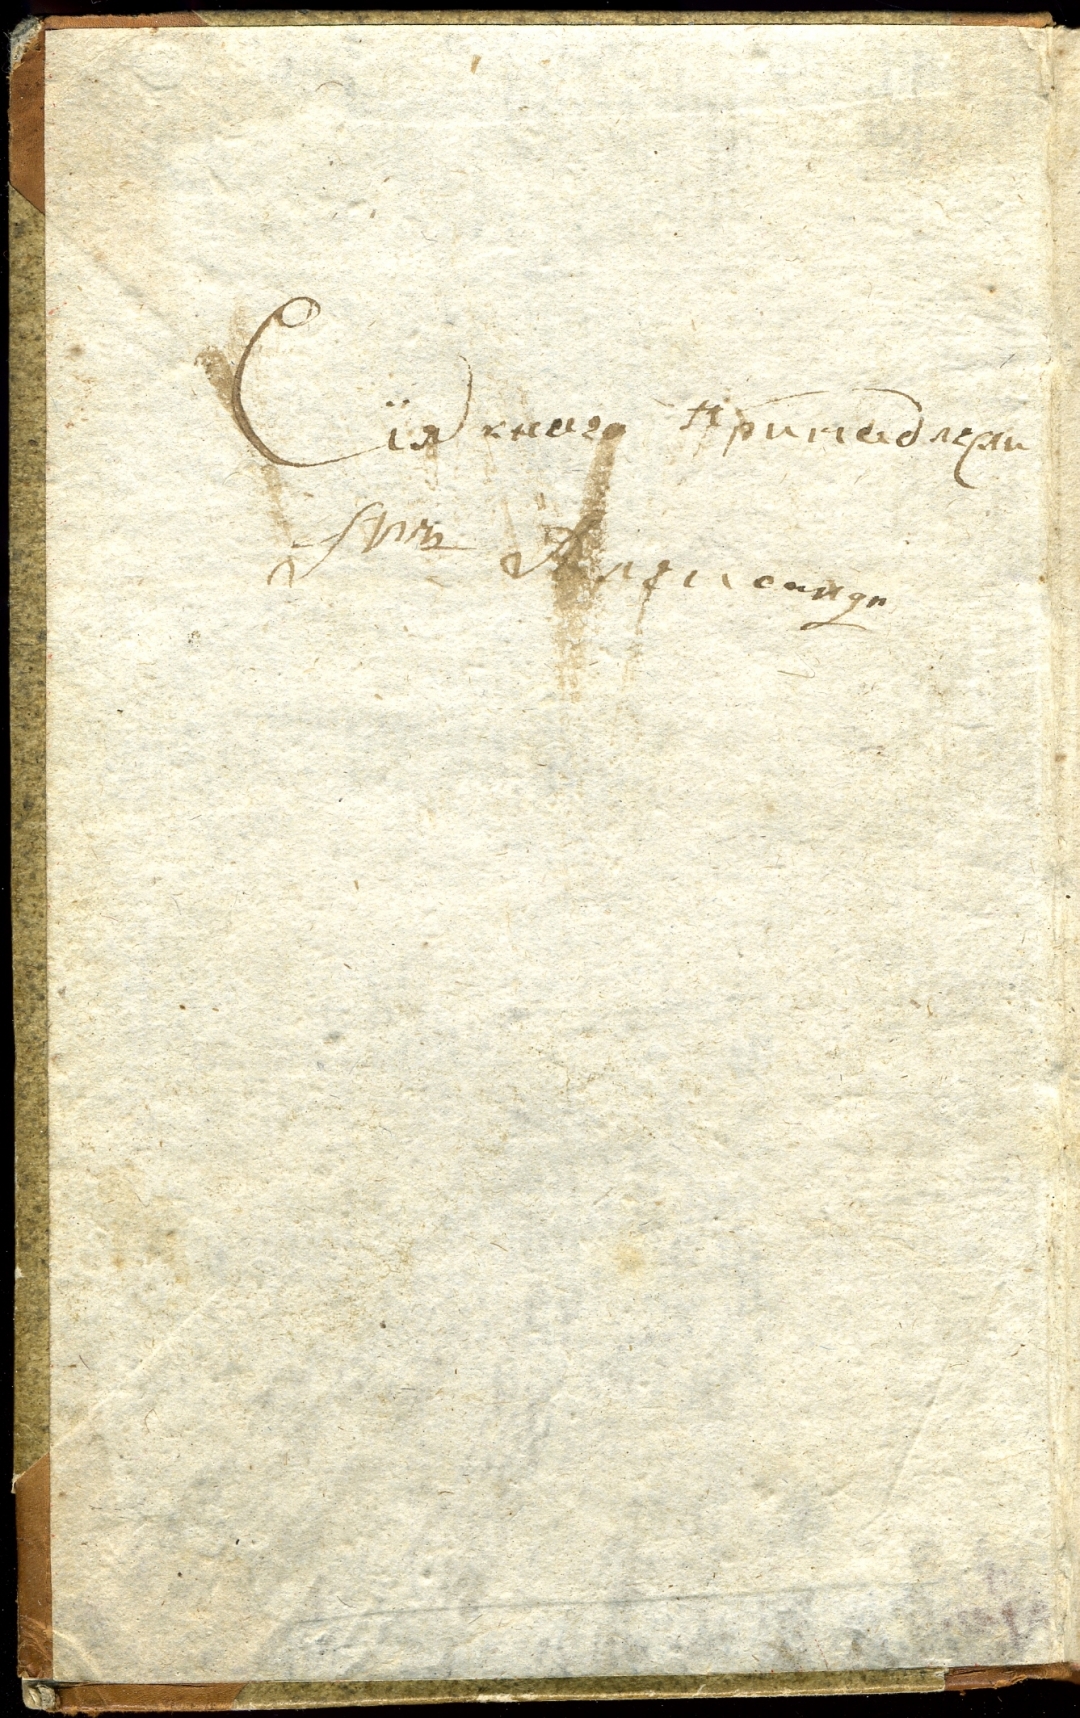 Сїя книга принадлежи
Александр